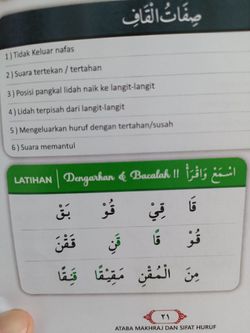 صِفَاتُ الْقَافِ
1) Tidak Keluar nafas
2) Suara tertekan / tertahan
3) Posisi pangkal lidah naik ke langit-langit
4) Lidah terpisah dari langit-langit
5) Mengeluarkan huruf dengan tertahan/susah
6) Suara memantul
LATIHAN Dengarkan & Bacalah !! اِسْمَعْ وَاقْرَأْ
قَا قِيْ قُوْ بَقْ
قُوْ قًا قٍ قَقْنَ
مِنَ الْمُقْنِ مَقِيْقًا
٢١
ATABA MAKHRAJ DAN SIFAT HURUF